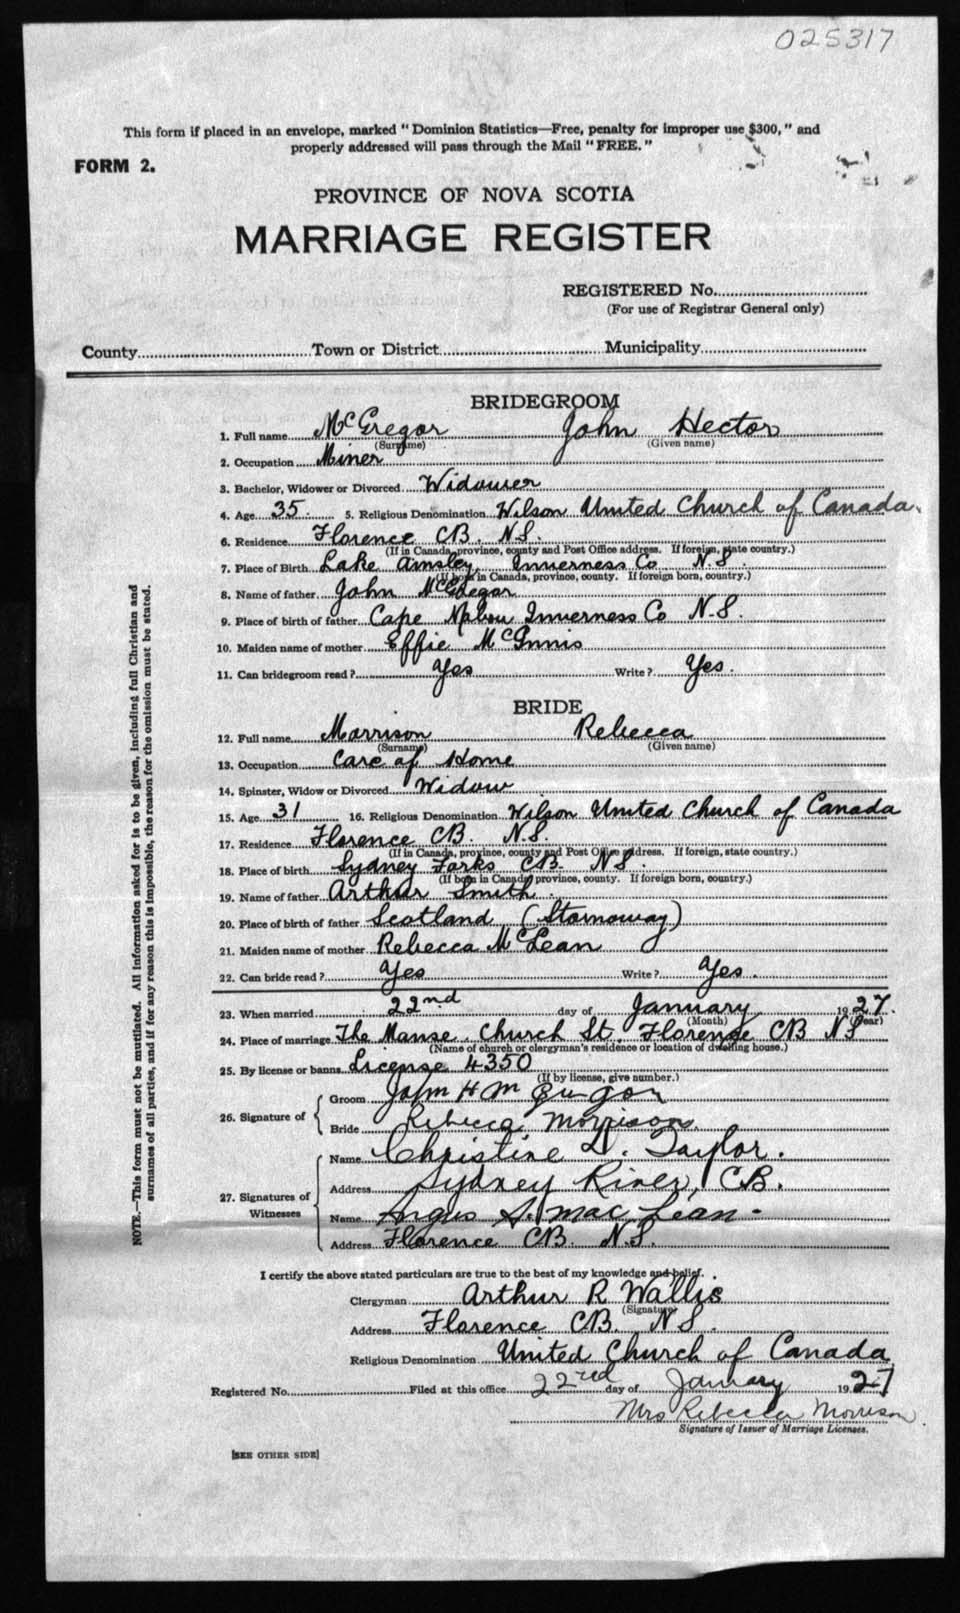 025317
This form if placed in an envelope, marked "Dominion Statistics—Free, penalty for improper use $300," and
properly addressed will pass through the Mail "FREE."
FORM 2.
PROVINCE OF NOVA SCOTIA
MARRIAGE REGISTER
REGISTERED No.
(For use of Registrar General only)
County Town or District Municipality
BRIDEGROOM
1. Full name McGregor John Hector
(Surname) (Given name)
2. Occupation Miner
3. Bachelor, Widower or Divorced Widower
4. Age 35 5. Religious Denomination Wilson United Church of Canada.
6. Residence Florence CB. N.S.
(If in Canada, province, county and Post Office address. If foreign, state country.)
7. Place of Birth Lake Ainsley, Inverness Co N.S.
(If born in Canada, province, county. If foreign born, country.)
8. Name of father John McGregor
9. Place of birth of father Cape Mabou Inverness Co N.S.
10. Maiden name of mother Effie McInnis
11. Can bridegroom read? Yes Write? Yes.
BRIDE
12. Full name Morrison Rebecca
(Surname) (Given name)
13. Occupation Care of Home
14. Spinster, Widow or Divorced Widow
15. Age 31 16. Religious Denomination Wilson United Church of Canada
17. Residence Florence CB. N.S.
(If in Canada, province, county and Post Office address. If foreign, state country.)
18. Place of birth Sydney Forks CB N.S
(If born in Canada, province, county. If foreign born, country.)
19. Name of father Arthur Smith
20. Place of birth of father Scotland (Stornoway)
21. Maiden name of mother Rebecca McLean
22. Can bride read? Yes Write? Yes.
23. When married 22nd day of January 1927.
(Month) (Year)
24. Place of marriage The Manse, Church St. Florence CB NS
(Name of church or clergyman's residence or location of dwelling house.)
25. By license or banns License 4350
(If by license, give number.)
26. Signature of
Groom John H
Bride Rebecca Morrison.
27. Signatures of Witnesses
Name Christine D. Taylor.
Address Sydney River, CB.
Name Angus S. MacLean
Address Florence CB. N.S.
I certify the above stated particulars are true to the best of my knowledge and belief.
Clergyman Arthur R Wallis
(Signature)
Address Florence CB. N.S.
Religious Denomination United Church of Canada
Registered No. Filed at this office 22nd day of January 1927
Mrs Rebecca Morrison.
Signature of Issuer of Marriage Licenses.
[SEE OTHER SIDE]
NOTE.—This form must not be mutilated. All information asked for is to be given, including full Christian and
surnames of all parties, and if for any reason this is impossible, the reason for the omission must be stated.